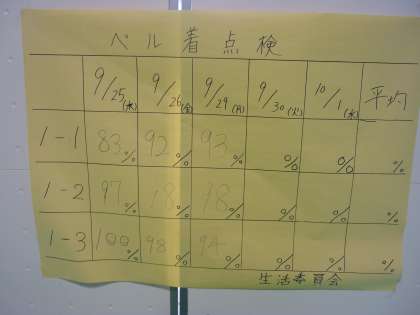 ベル着点検
9/25(木) 9/26(金) 9/29(月) 9/30(火) 10/1(水) 平均
1-1 83% 92% 93% % % %
1-2 97% 98% 98% % % %
1-3 100% 98% 94% % % %
生活委員会